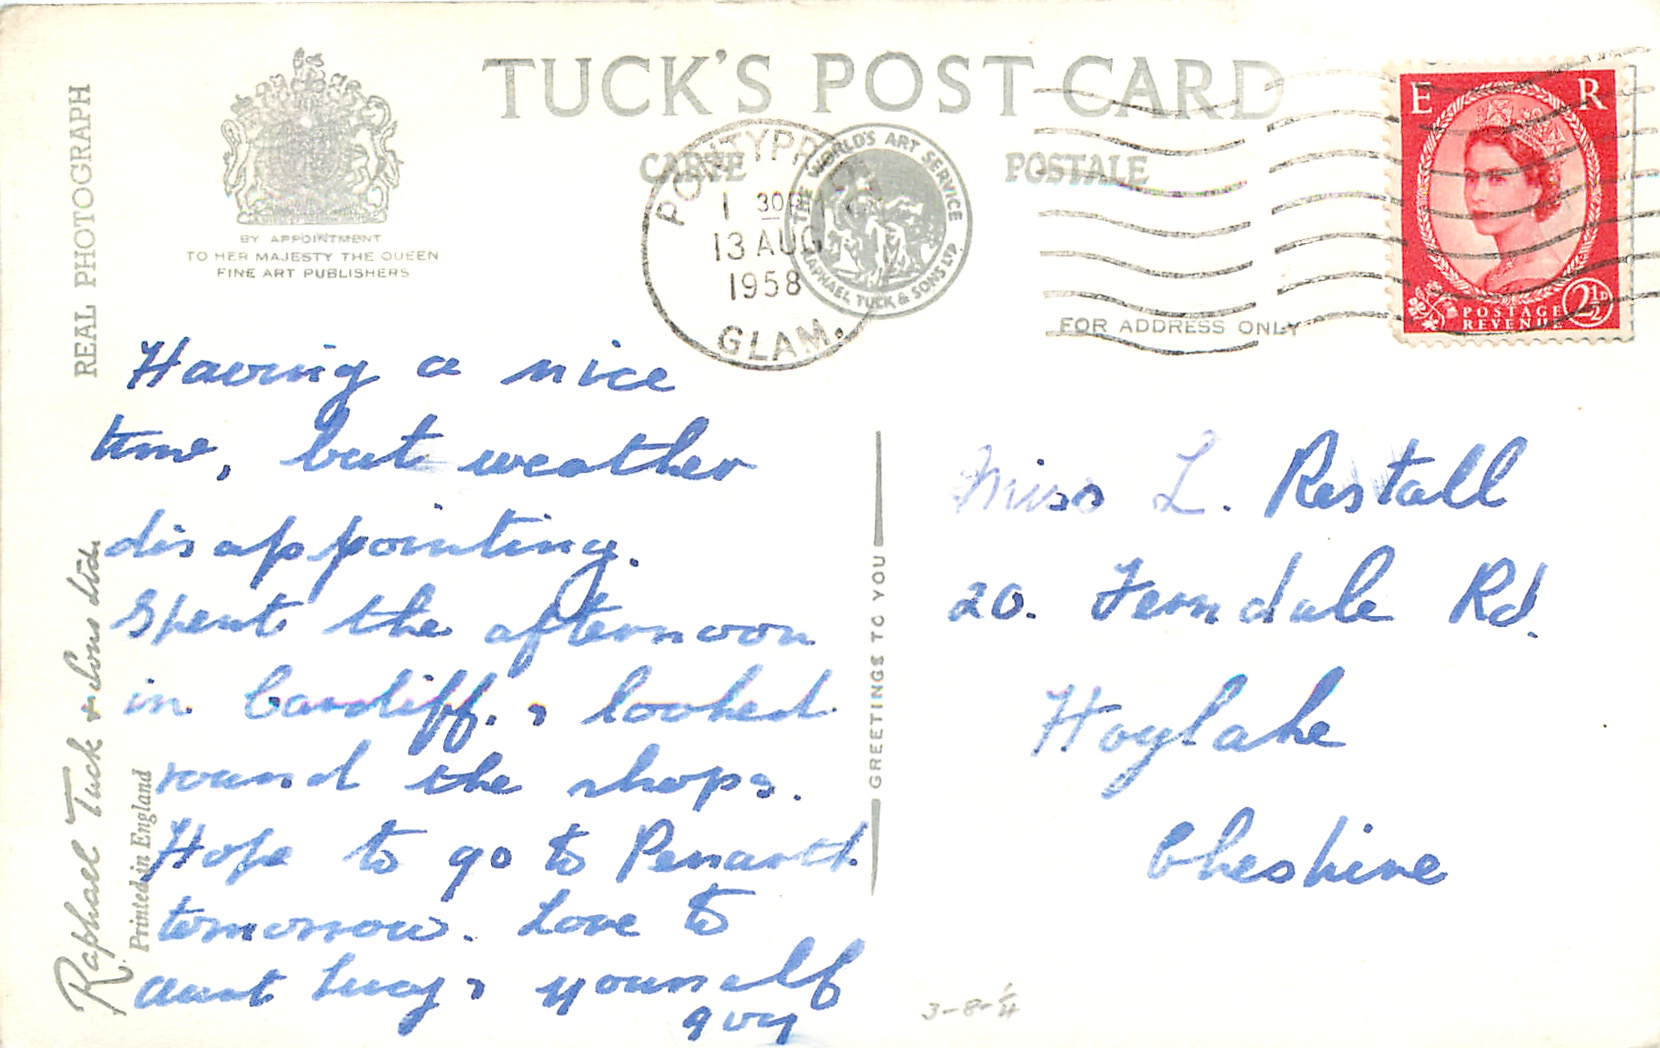 TUCK'S POST CARD
CARTE POSTALE
REAL PHOTOGRAPH
BY APPOINTMENT
TO HER MAJESTY THE QUEEN
FINE ART PUBLISHERS
PONTYPRI
1 30
13 AUG
1958
GLAM.
THE WORLD'S ART SERVICE
RAPHAEL TUCK & SONS LTD
E R
POSTAGE
REVENUE
2½D
FOR ADDRESS ONLY
Having a nice
time, but weather
disappointing.
Spent the afternoon
in Cardiff. & looked
round the shops.
Hope to go to Penarth
tomorrow. Love to
Aunt Lucy & yourself
GREETINGS TO YOU
Miss L. Restall
20. Ferndale Rd.
Hoylake
Cheshire
Raphael Tuck & Sons Ltd.
Printed in England
3-8-¼